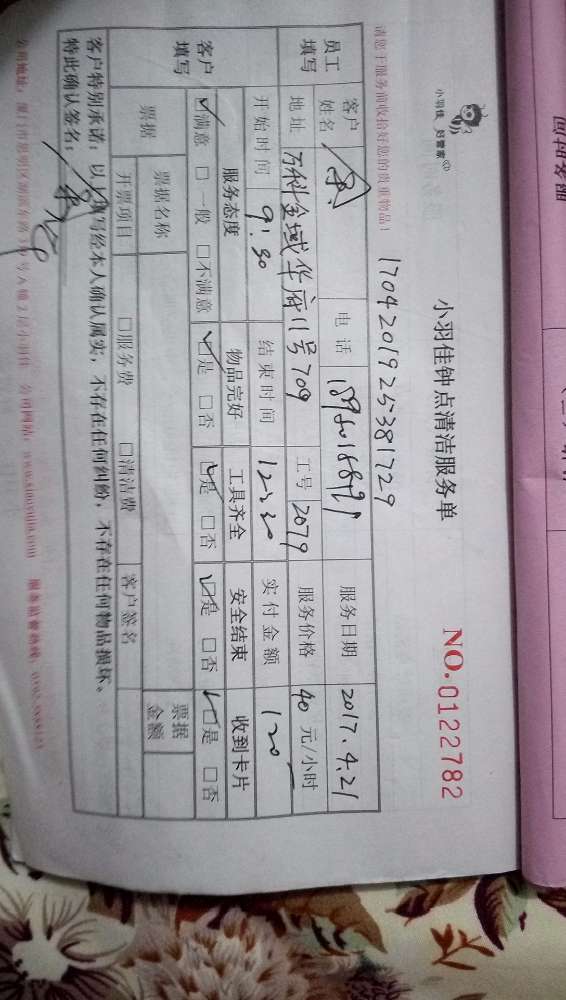 小羽佳 好管家
小羽佳钟点清洁服务单
NO.0122782
请您于服务前收拾好您的贵重物品！
1704201925381729
员工填写
客户姓名 电话 服务日期 2017.4.21
地址 万科金域华府11号709 工号 2079 服务价格 40 元/小时
开始时间 9:30 结束时间 12:30 实付金额 120
客户填写
服务态度 物品完好 工具齐全 安全结束 收到卡片
☑满意 □一般 □不满意 ☑是 □否 ☑是 □否 ☑是 □否 ☑是 □否
票据 票据名称 票据金额
开票项目 □服务费 □清洁费 客户签名
客户特别承诺：以上填写经本人确认属实，不存在任何纠纷，不存在任何物品损坏。
特此确认签名：